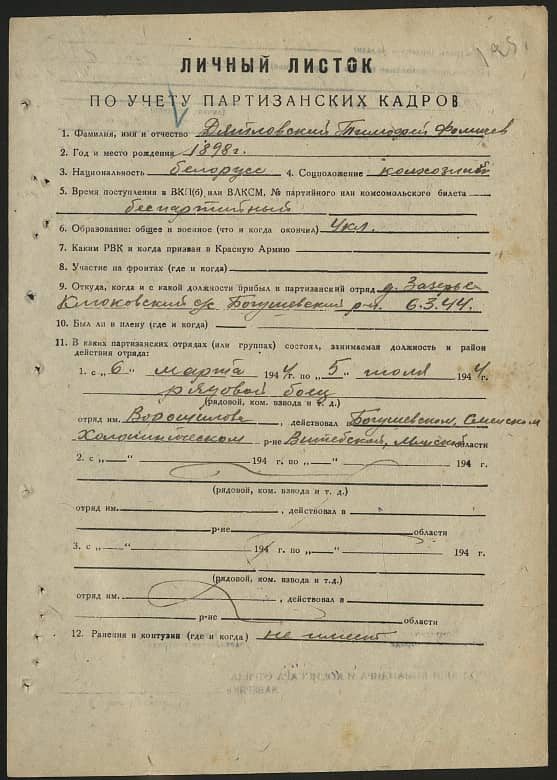 ЛИЧНЫЙ ЛИСТОК
ПО УЧЕТУ ПАРТИЗАНСКИХ КАДРОВ
1. Фамилия, имя и отчество Дятловский Тимофей Фомичев
2. Год и место рождения 1898г.
3. Национальность белорусс 4. Соцположение колхозник
5. Время поступления в ВКП(б) или ВЛКСМ, № партийного или комсомольского билета
беспартийный
6. Образование: общее и военное (что и когда окончил) 4кл.
7. Каким РВК и когда призван в Красную Армию
8. Участие на фронтах (где и когда)
9. Откуда, когда и с какой должности прибыл в партизанский отряд д. Зазерье
Клюковский с/с Богушевский р-н. 6.3.44.
10. Был ли в плену (где и когда)
11. В каких партизанских отрядах (или группах) состоял, занимаемая должность и район
действия отряда:
1. с „6" марта 1944 г. по „5" июля 1944 г.
рядовой боец
(рядовой, ком. взвода и т. д.)
отряд им. Ворошилова, действовал в Богушевском,
Холопиническом р-не Витебской, Минской области
2. с „ " 194 г. по „ " 194 г.
(рядовой, ком. взвода и т. д.)
отряд им. , действовал в
р-не области
3. с „ " 194 г. по „ " 194 г.
(рядовой, ком. взвода и т.д.)
отряд им. , действовал в
р-не области
12. Ранения и контузии (где и когда) не имеет